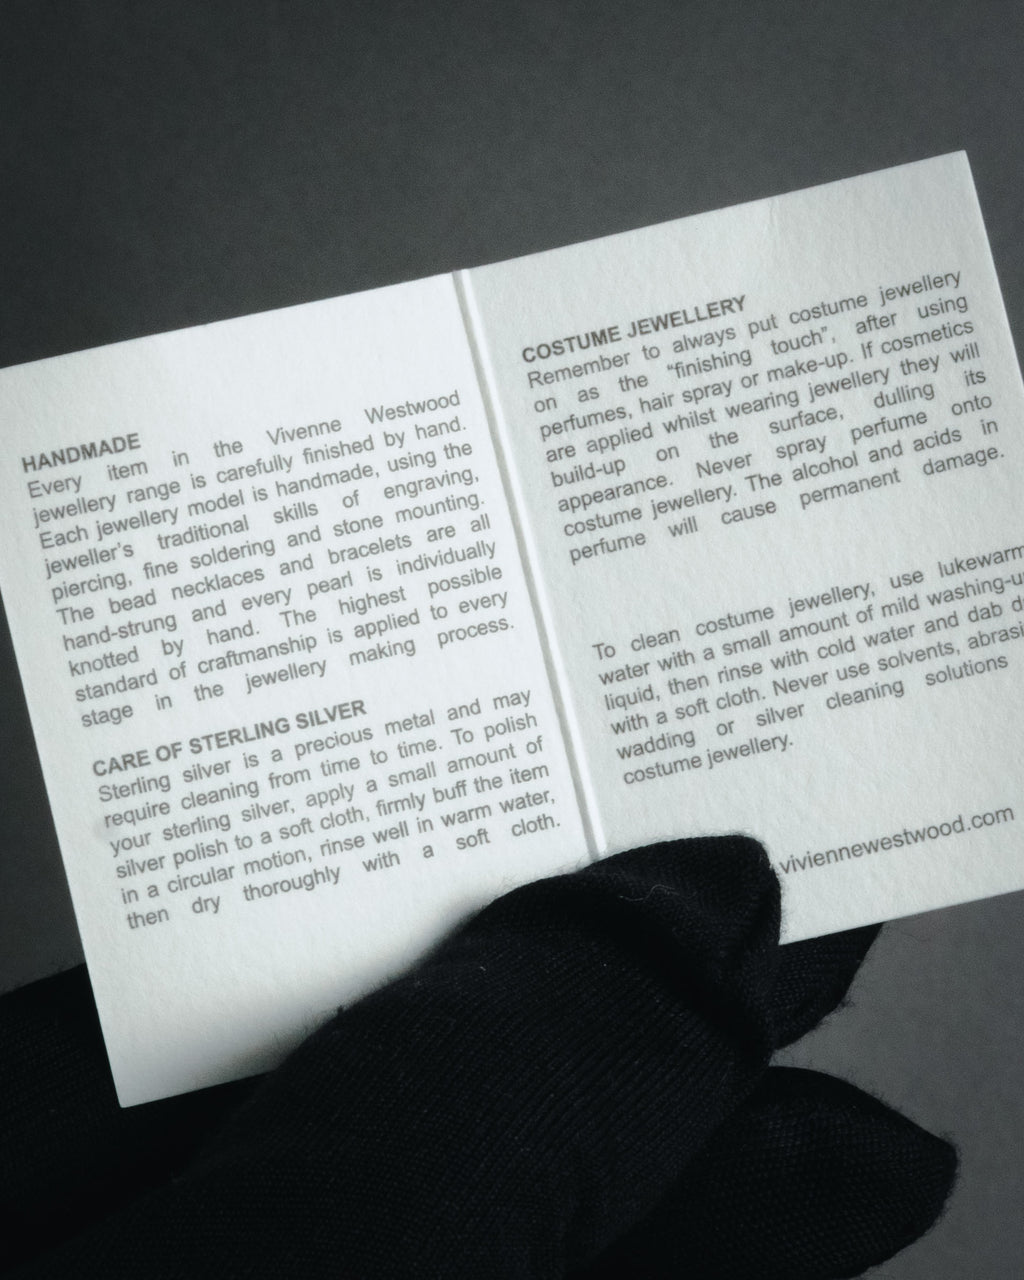 HANDMADE
Every item in the Vivenne Westwood
jewellery range is carefully finished by hand.
Each jewellery model is handmade, using the
jeweller's traditional skills of engraving,
piercing, fine soldering and stone mounting.
The bead necklaces and bracelets are all
hand-strung and every pearl is individually
knotted by hand. The highest possible
standard of craftmanship is applied to every
stage in the jewellery making process.
CARE OF STERLING SILVER
Sterling silver is a precious metal and may
require cleaning from time to time. To polish
your sterling silver, apply a small amount of
silver polish to a soft cloth, firmly buff the item
in a circular motion, rinse well in warm water,
then dry thoroughly with a soft cloth.
COSTUME JEWELLERY
Remember to always put costume jewellery
on as the “finishing touch”, after using
perfumes, hair spray or make-up. If cosmetics
are applied whilst wearing jewellery they will
build-up on the surface, dulling its
appearance. Never spray perfume onto
costume jewellery. The alcohol and acids in
perfume will cause permanent damage.
To clean costume jewellery, use lukewarm
water with a small amount of mild
liquid, then rinse with cold water and dab
with a soft cloth. Never use solvents,
wadding or silver cleaning solutions
costume jewellery.
viviennewestwood.com